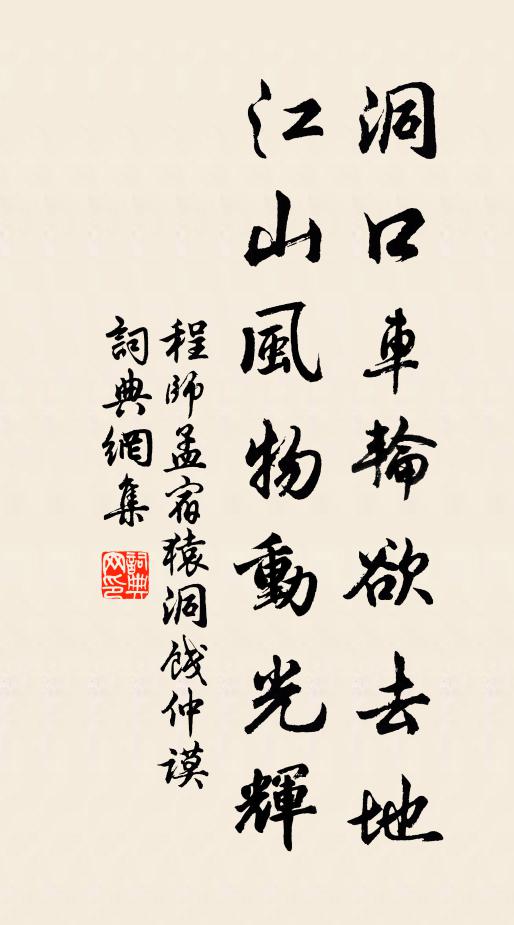 洞口車輪欲去地
江山風物動光輝
程師孟宿猿洞餞仲謨
詞典網集
詞典網印